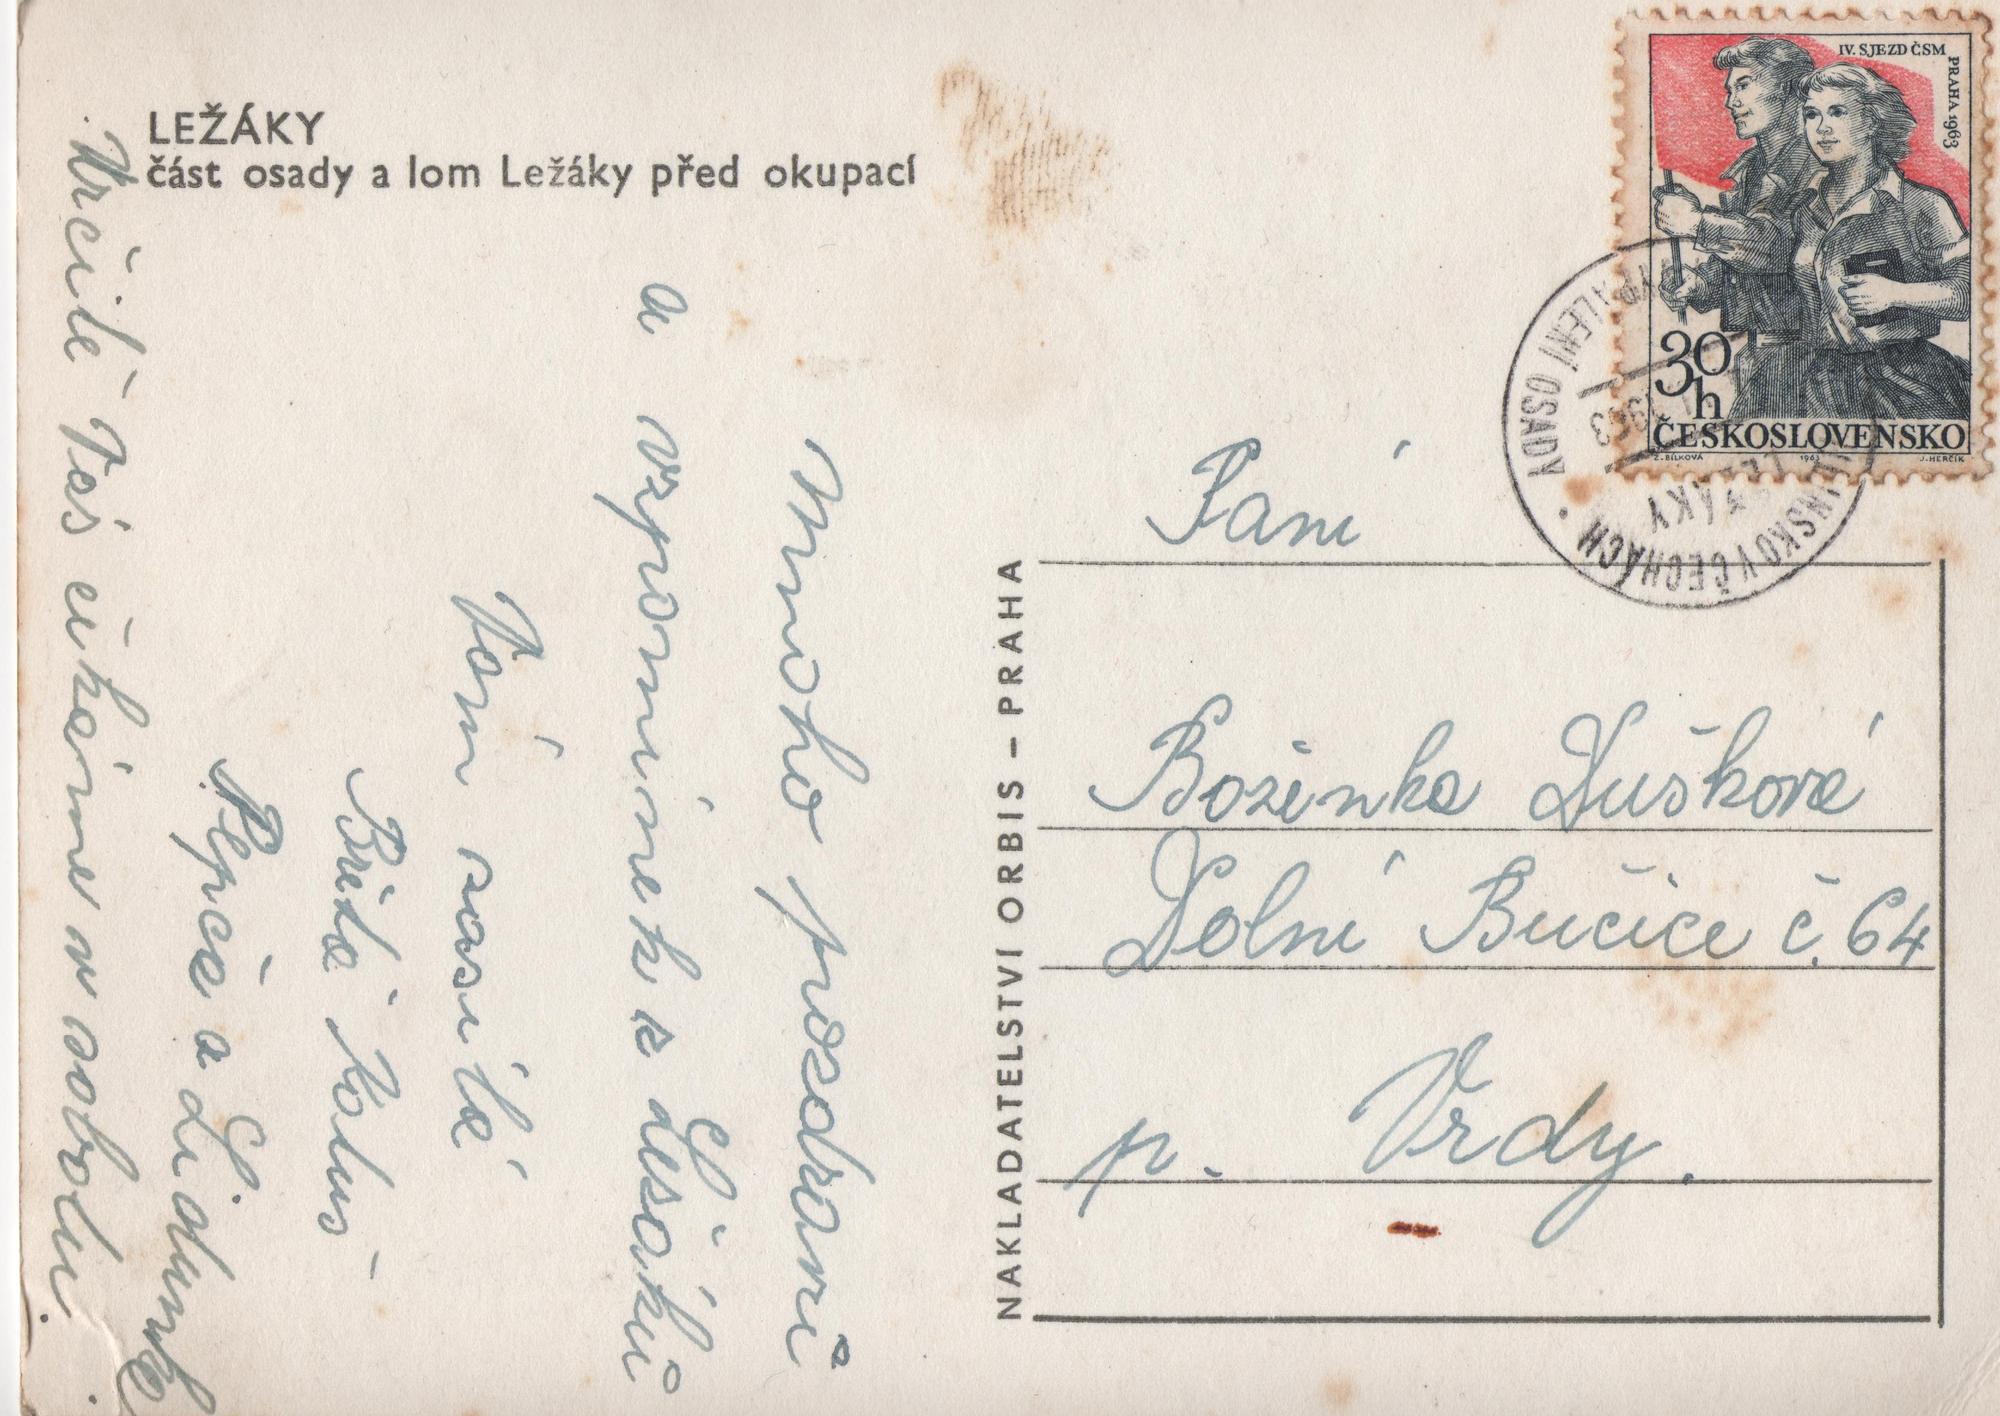 LEŽÁKY
část osady a lom Ležáky před okupací
Mnoho pozdravů
a vzpomínek z Ležáků
Vám zasílá
Pepča a Liduna
Určitě Vás čekáme v sobotu.
NAKLADATELSTVÍ ORBIS – PRAHA
IV. SJEZD ČSM
PRAHA 1963
30 h
ČESKOSLOVENSKO
Z. BÍLKOVÁ 1963 J. HERČÍK
VYPÁLENÍ OSADY
LEŽÁKY
V ČECHÁCH
Paní
Boženka Dušková
Dolní Bučice č. 64
p. Vrdy.